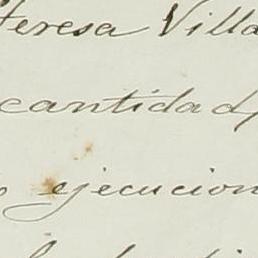 Teresa Villa
cantidad,
ejecucion